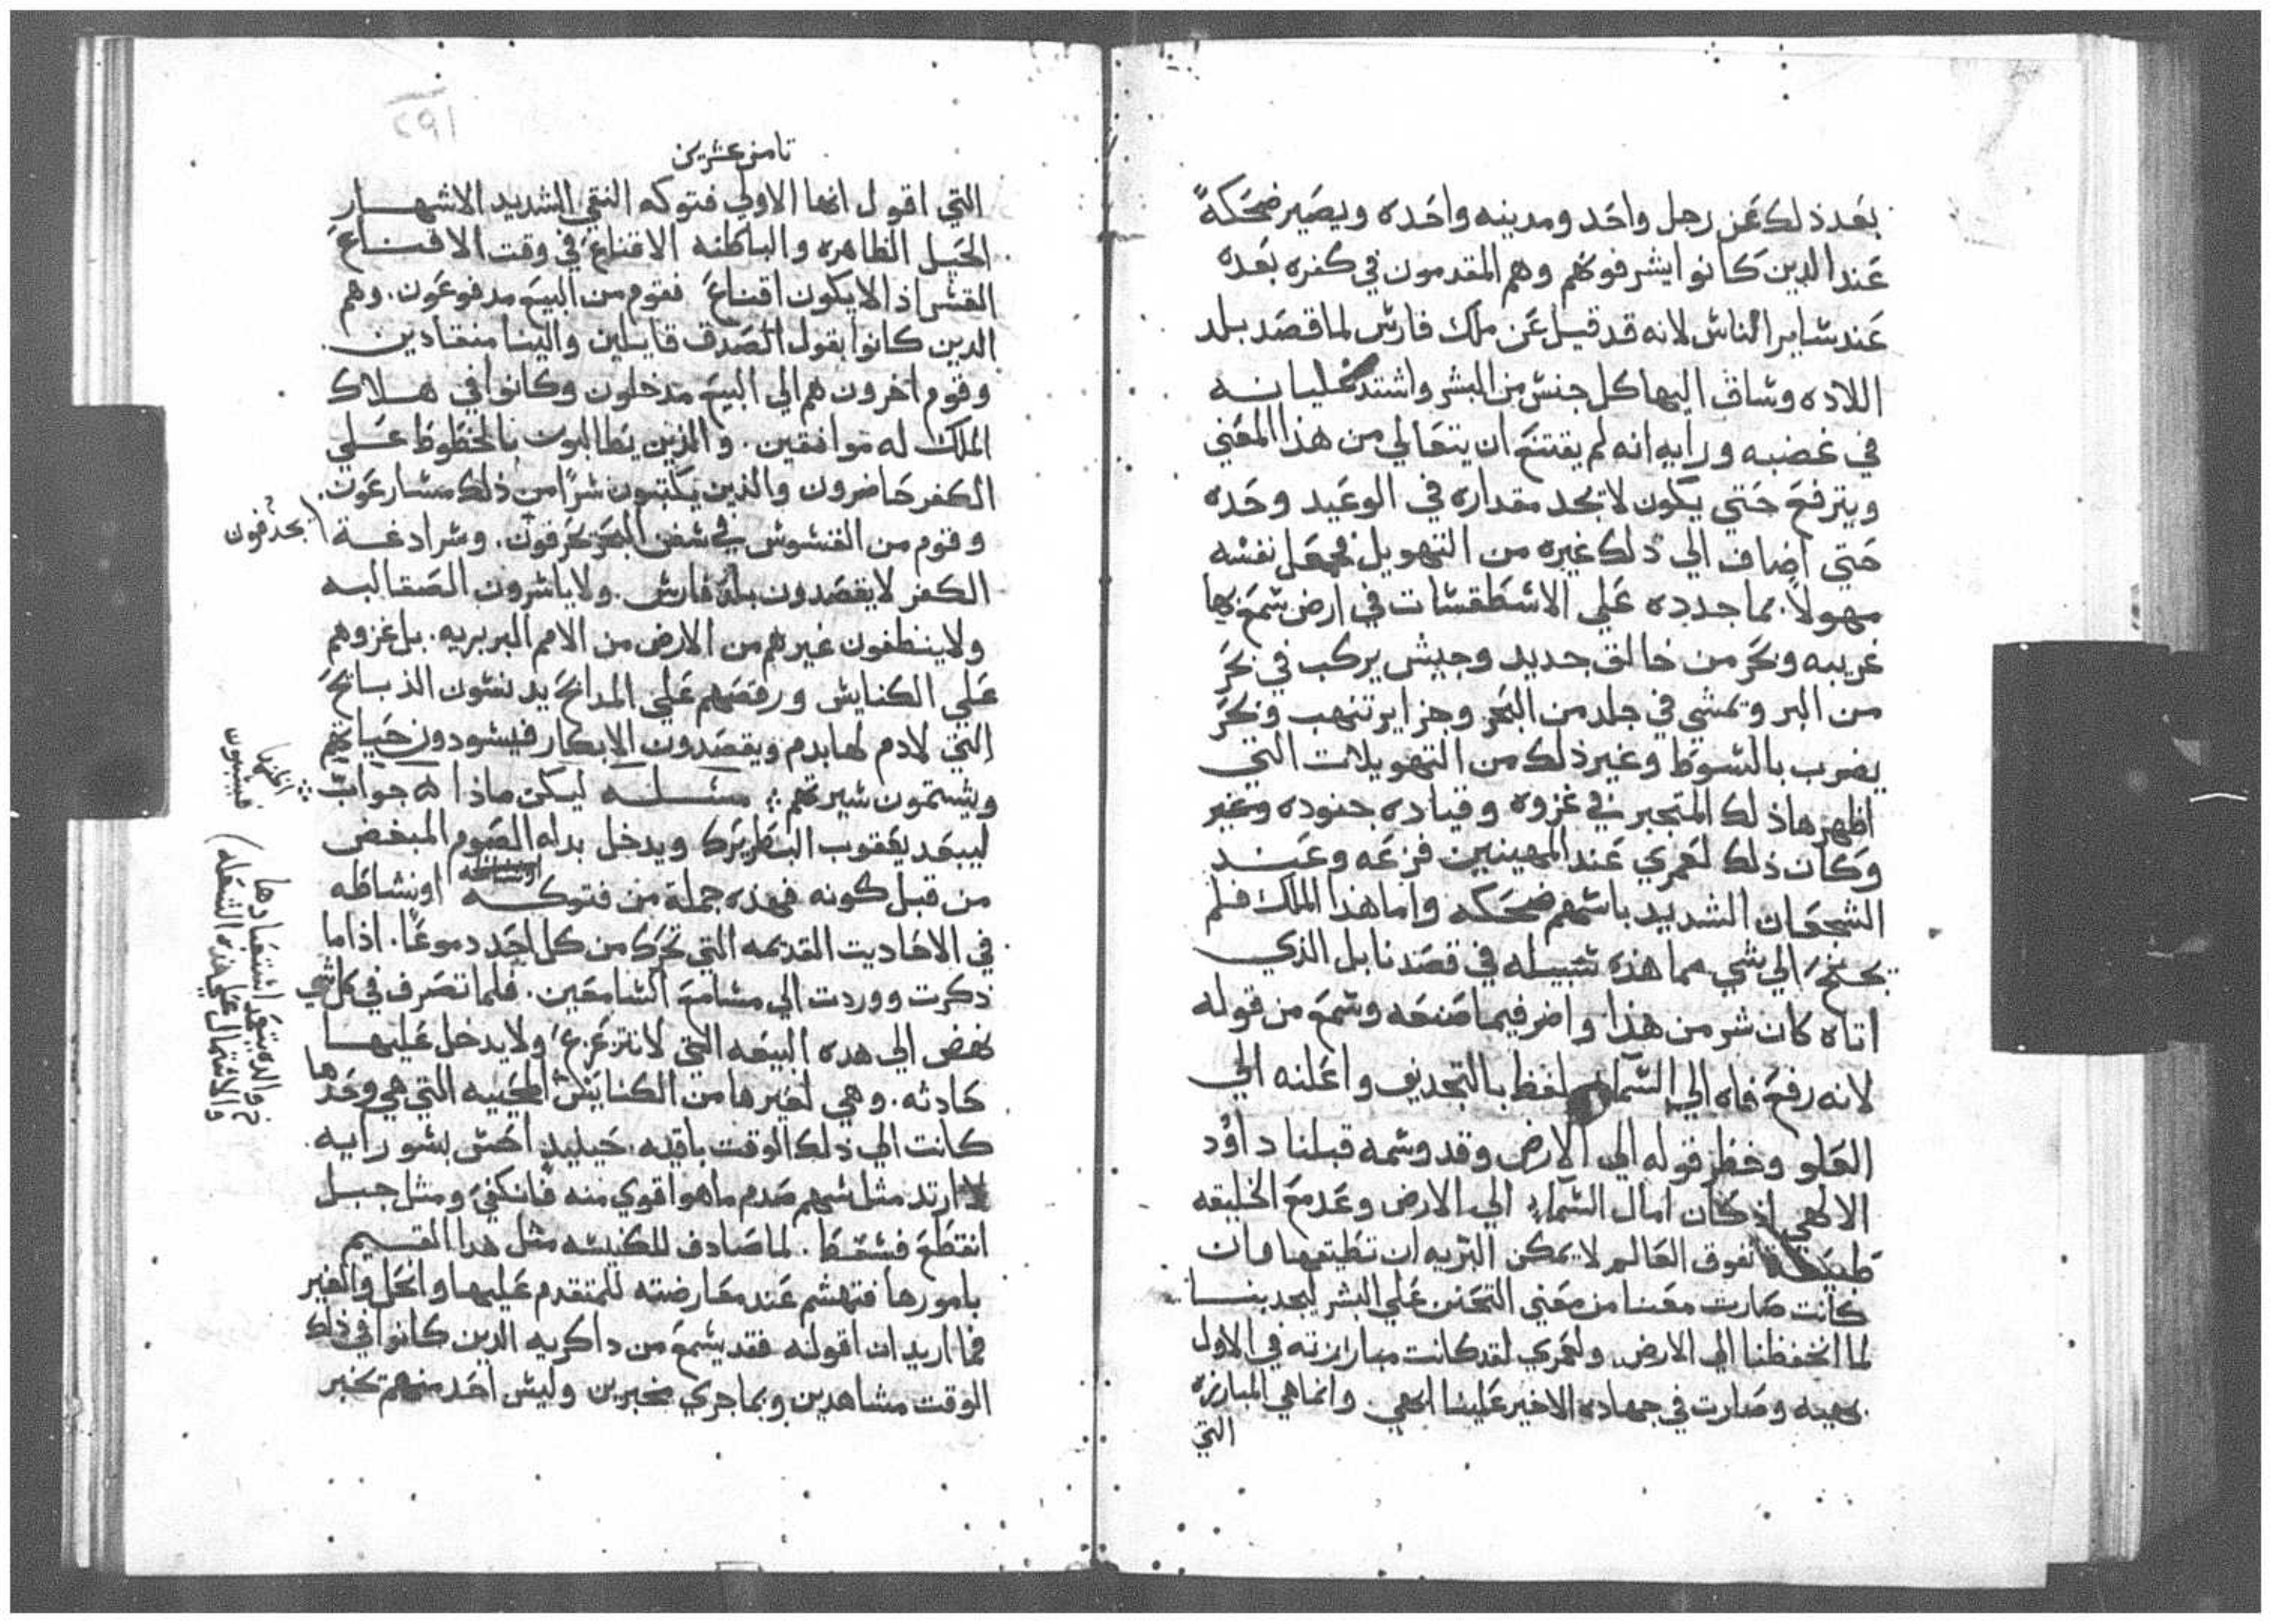 بعد ذلك عن رجل واحد ومدينه واحده ويصير ضحكة
عند الدين كانوا يشرفونهم وهم المقدمون في كفره بعده
عند شاير الناش لانه قد قيل عن ملك فارش لما قصد بلد
اللاده وشاق اليها كل جنش من البشر واشتد غليانه
في غضبه ورايه انه لم يقتنع ان يتعالي من هذا المعني
ويترفع حتي يكون لا تجد مقداره في الوعيد وحده
حتي اضاف الي ذلك غيره من التهويل فجعل نفشه
مهولاً. بما جدده علي الاشطقشات في ارض شمع بها
غريبه وبحر من خالق جديد وجيش يركب في بحر
من البر ويمشي في جلد من البحر وجزاير تنهب وبحر
يضرب بالشوط وغير ذلك من التهويلات التي
اظهرها ذلك المتجبر في غزوه وقياده جنوده وتغير
وكان ذلك لعمري عند المهينين فزعه وعند
الشجعان الشديد باشهم ضحكه واما هذا الملك فلم
يحتج الي شي مما هذه شبيله في قصدنا بل الذي
اتاه كان شر من هذا واضر فيما صنعه وشمع من قوله
لانه رفع فاه الي الشما لفظ بالتجديف واعلنه الي
العلو وخطر قوله الي الارض وقد وشمه قبلنا داوُد
الالهي اذ كان امال الشماء الي الارض وعد مع الخليقه
تفوق العالم لا يمكن البريه ان تطيقها وان
كانت صارت معنا من معني التحنن علي البشر ليجدبنا
لما انخفظنا الي الارض. ولعمري لقد كانت مبارزته في الاول
بهيه وصارت في جهاده الاخير علينا ابهي. وانما هي المبارزه
التي
٢٩١
تامن عشرين
التي اقول انها الاولي فتوكه النقي الشديد الاشهار
الحيل الظاهره والباطنه الاقناع في وقت الاقناع
القشر اذ الا يكون اقناع فقوم من البيع مدفوعون. وهم
الدين كانوا بقول الصدق قايلين والينا منقادين.
وقوم اخرون هم الي البيع مدخلون وكانوا في هلاك
الملك له موافقين. والذين يطالبون بالخطوط علي
الكفر حاضرون والذين يكتبون شراً من ذلك مشارعون.
وقوم من القشوش في شفن البحر يحرقون. وشرادغة
يحدفون
الكفر لا يقصدون بلد فارش. ولا ياشرون الصقالبه
ولا ينظفون غيرهم من الارض من الامم البربريه. بل غزوهم
علي الكنايش ورقصهم علي المدابح يدنشون الذبايح
التي لا دم لها بدم ويقصدون الابكار فيشودون حياتهم
ويشتمون شيرتهم مشله ليكن ماذا جواب
ليبعد يعقوب البطريرك ويدخل بدله الصوم المبغض
من قبل كونه فهذه جملة من فتوكه او نشاطه
في الاحاديت القديمه التي تحرك من كل احد دموعاً. اذا ما
ذكرت ووردت الي مشامع الشامعين. فلما تصرف في كل شي
نهض الي هده البيعه التي لا تتزعزع ولا يدخل عليها
حادثه. وهي لغيرها من الكنايش المحييه التي هي وحدها
كانت الي ذلك الوقت باقيه. حينيد احش بشو رايه.
ارتد مثل شهم صدم ما هو اقوي منه فانكفي ومثل جبل
انقطع فشقط. لما صادف للكنيشه مثل هدا القيم
بامورها فتهشم عند معارضته للمتقدم عليها وانحل والغير
مما اريد ان اقوله فقد يشمع من داكريه الدين كانوا في ذلك
الوقت مشاهدين وبما جري مخبرين وليش احد منهم تخبر